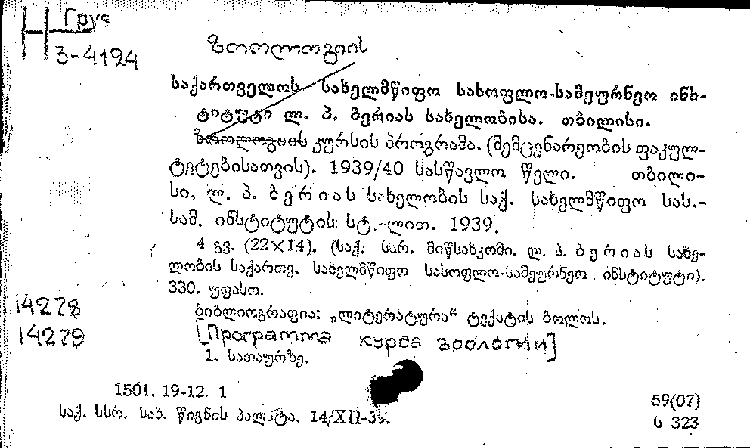 Груз
Н
3-4194
ზოოლოგიის
საქართველოს სახელმწიფო სასოფლო-სამეურნეო ინს-
ტიტუტი ლ. პ. ბერიას სახელობისა. თბილისი.
ზოოლოგიის კურსის პროგრამა. (მემცენარეობის ფაკულ-
ტეტებისათვის). 1939/40 სასწავლო წელი. თბილი-
სი, ლ. პ. ბერიას სახელობის საქ. სახელმწიფო სას.-
სამ. ინსტიტუტის სტ.-ლით. 1939.
4 გვ. (22×14). (საქ. სსრ. მიწსახკომი. ლ. პ. ბერიას სახე-
ლობის საქართვ. სახელმწიფო სასოფლო-სამეურნეო ინსტიტუტი).
330. უფასო.
ბიბლიოგრაფია: „ლიტერატურა“ ტექსტის ბოლოს.
14278
14279
[Программа курса зоологии]
1. სათაურზე.
1501. 19-12. 1
საქ. სსრ. სახ. წიგნის პალატა. 14/XII-39.
59(07)
ს 323